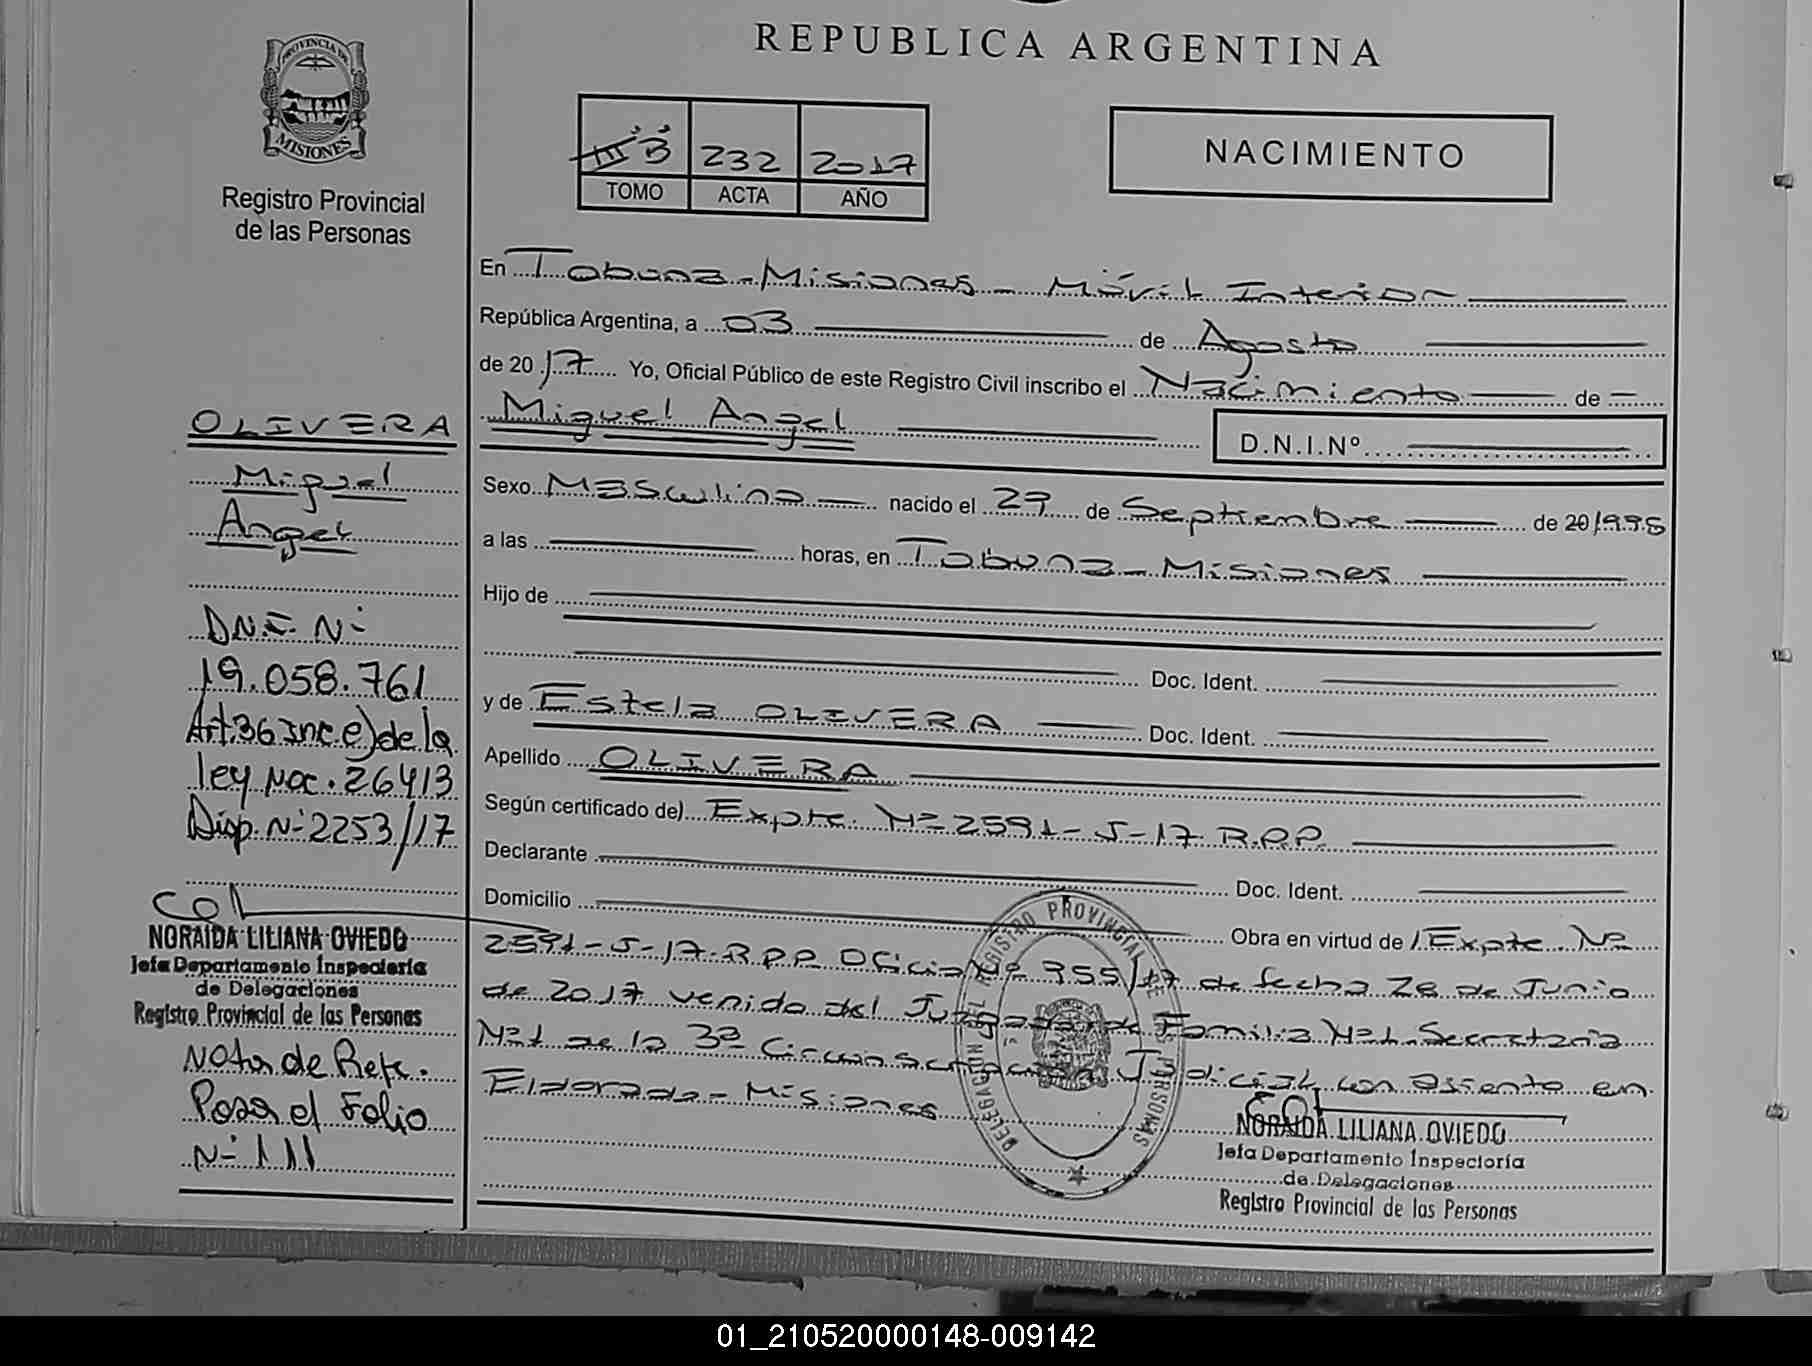 REPUBLICA ARGENTINA
PROVINCIA DE
MISIONES
Registro Provincial
de las Personas
III "B" 232 2017
TOMO ACTA AÑO
NACIMIENTO
En Tobuna - Misiones - Móvil Interior
República Argentina, a 03 de Agosto
de 2017 Yo, Oficial Público de este Registro Civil inscribo el Nacimiento de
Miguel Angel
D.N.I.Nº
Sexo Masculino nacido el 29 de Septiembre de 20/1995
a las horas, en Tobuna - Misiones
Hijo de
Doc. Ident.
y de Estela OLIVERA Doc. Ident.
Apellido OLIVERA
Según certificado de) Expte. Nº 2591-J-17 R.P.P.
Declarante Doc. Ident.
Domicilio
Obra en virtud de / Expte. Nº
2591-J-17-R.P.P. Oficio Nº 955/17 de fecha 28 de Junio
de 2017 venido del Juzgado de Familia Nº 1. Secretaria
Nº 1 de la 3ª Circunscripción Judicial con asiento en
Eldorado - Misiones
OLIVERA
Miguel
Angel
D.N.I. Nº
19.058.761
Art. 36 inc e) de la
ley Nac. 26413
Disp. Nº 2253/17
NORAIDA LILIANA OVIEDO
Jefa Departamento Inspectoría
de Delegaciones
Registro Provincial de las Personas
Nota de Refe.
Pasa el Folio
Nº 111
DELEGACION DEL REGISTRO PROVINCIAL DE LAS PERSONAS
NORAIDA LILIANA OVIEDO
Jefa Departamento Inspectoría
de Delegaciones
Registro Provincial de las Personas
01_210520000148-009142